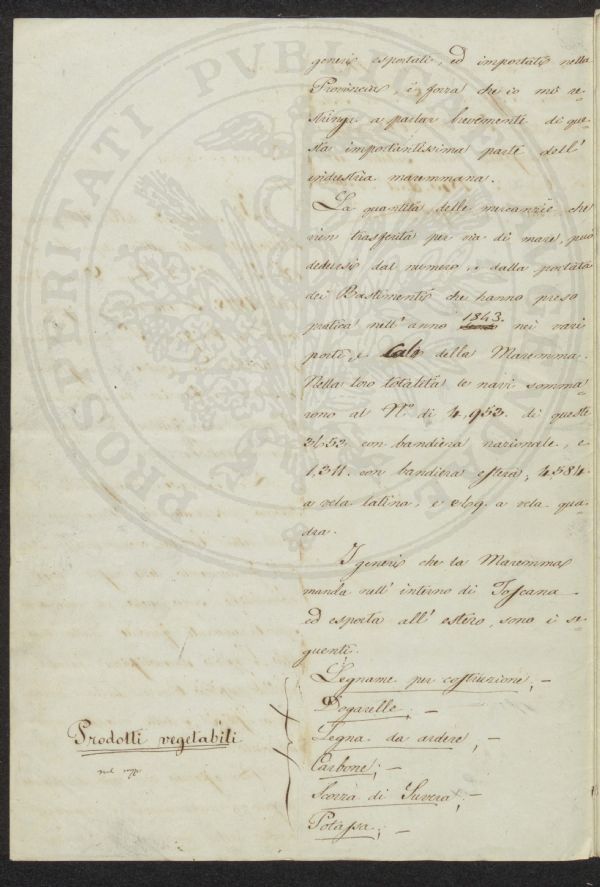 generi esportati, ed importati nella
Provincia, è forza che io mi re-
stringa a parlar brevemente di que-
sta importantissima parte dell'
industria maremmana.
La quantità delle mercanzie che
vien trasferita per via di mare, può
dedursi dal numero, e dalla portata
dei Bastimenti che hanno preso
pratica nell'anno 1843. nei vari
porti, e Cale della Maremma.
Nella loro totalità le navi somma-
rono al N.º di 4,953. di queste
con bandiera nazionale, e
1,311. con bandiera estera; 4584.
a vela latina, e a vela qua-
dra.
I generi che la Maremma
manda nell'interno di Toscana
ed esporta all'estero, sono i se-
guenti.
Legname per costruzione; -
Dogarelle; -
Legna da ardere; -
Prodotti vegetabili
Carbone; -
Scorza di Suvera; -
Potassa; -
PROSPERITATI PUBLICAE